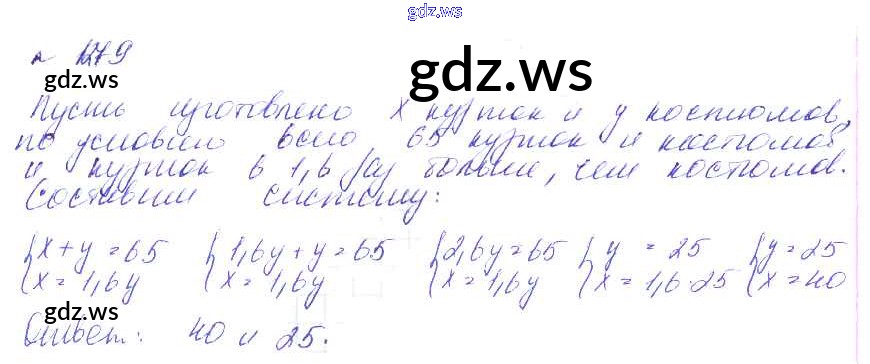 gdz.ws
№ 1279
gdz.ws gdz.ws
Пусть изготовлено x курток и y костюмов,
по условию всего 65 курток и костюмов
и курток в 1,6 раз больше, чем костюмов.
Составим систему:
{x+y=65 {1,6y+y=65 {2,6y=65 {y=25 {y=25
{x=1,6y {x=1,6y {x=1,6y {x=1,6·25 {x=40
gdz.ws gdz.ws
Ответ: 40 и 25.